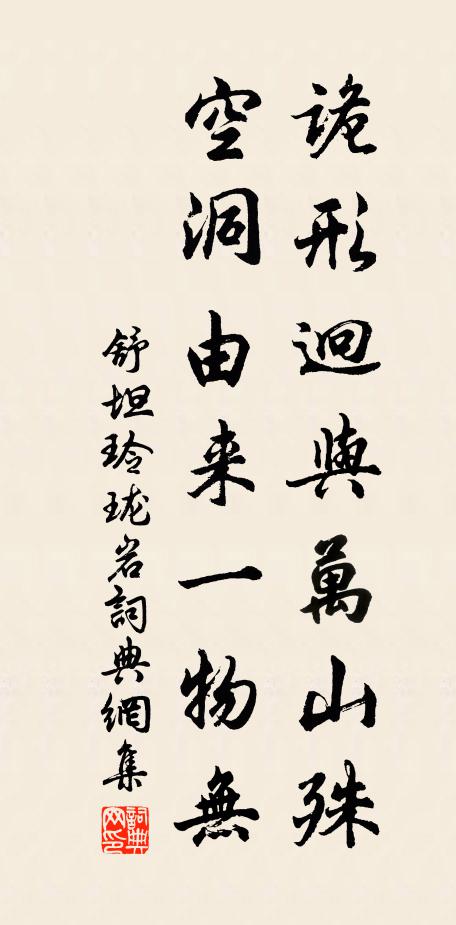 詭形迥與萬山殊
空洞由来一物無
舒坦玲瓏岩詞典網集
詞典网印